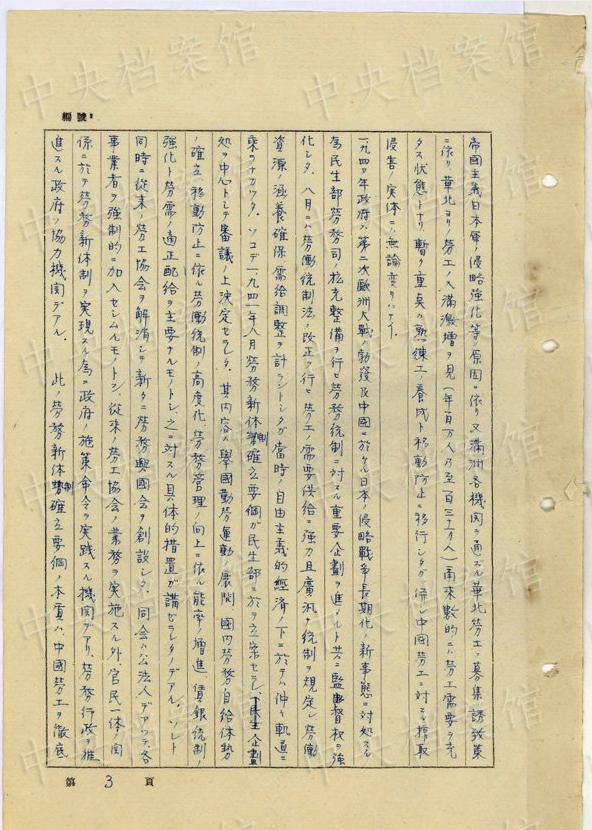 編號:
帝國主義日本軍ノ侵略強化等ノ原因ニ依リ又満洲各機関ヲ通ズル華北労工ノ募集誘致策
ニ依リ華北ヨリ労工ノ入満激増ヲ見(年百万人乃至百三十万人)爾來数的ニハ労工需要ヲ充
タス状態トナリ暫ク重点ハ熟練工ノ養成ト移動防止ニ移行シタガ併シ中國労工ニ対スル搾取
侵害ノ実体ニハ無論変リハナイ。
一九四〇年政府ハ第二次歐洲大戦ノ勃発及中國ニ於ケル日本ノ侵略戦争長期化ノ新事態ニ対処スル
為民生部労務司ノ拡充整備ヲ行ヒ労務統制ニ対スル重要企劃ヲ進メルト共ニ監督権ヲ強
化シタ、八月ニハ労働統制法ノ改正ヲ行ヒ労工ノ需要供給ニ強力且廣汎ナ統制ヲ規定シ労働
資源ノ涵養確保、需給調整ヲ計ラントシタガ當時ノ自由主義的経済ノ下ニ於テハ仲々軌道ニ
乗ラナカツタ。ソコデ一九四一年八月労務新体制確立要綱ガ民生部ニ於テ立案セラレ、企劃
処ヲ中心トシテ審議ノ上決定セラレタ。其内容ハ舉國勤労運動ノ展開、國内労務自給体勢
ノ確立、移動防止ニ依ル労働統制ノ高度化、労務管理ノ向上ニ依ル能率ノ増進、賃銀統制ノ
強化ト労需ノ適正配給ヲ主要ナルモノトシ、之ニ対スル具体的措置ガ講ゼラレタノデアル。ソレト
同時ニ従来ノ労工協会ヲ解消シテ新タニ労務興國会ヲ創設シタ。同会ハ公法人デアツテ各
事業者ヲ強制的ニ加入セシムルモノトシ、従来ノ労工協会ノ業務ヲ実施スル外、官民一体ノ関
係ニ於テ労務新体制ヲ実現スル為ニ政府ノ施策命令ヲ実践スル機関デアリ、労務行政ヲ推
進スル政府ノ協力機関デアル。 此ノ労務新体制確立要綱ノ本質ハ、中國労工ヲ徹底
第 3 頁
中央档案馆